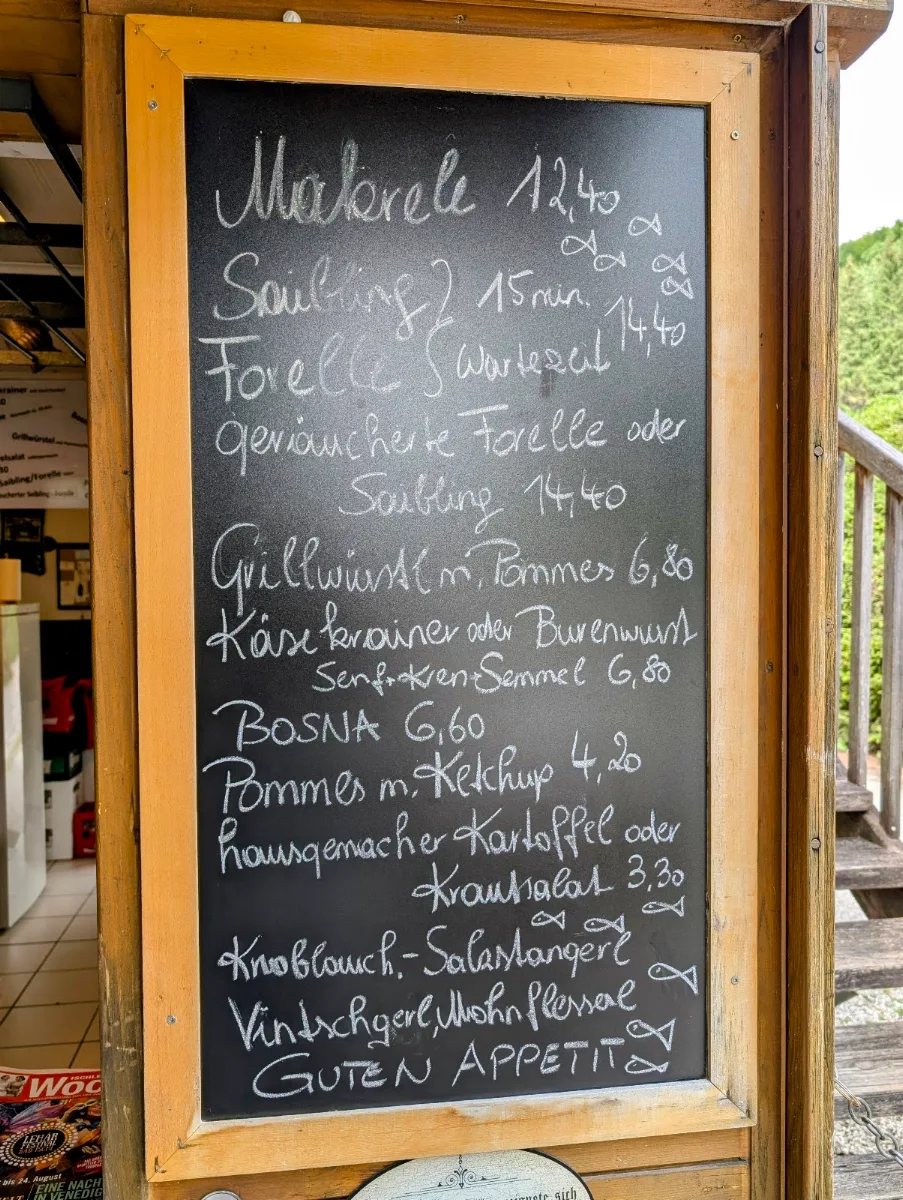 Makrele 12,40
Saibling } 15 min. 14,40
Forelle } Wartezeit
geräucherte Forelle oder
Saibling 14,40
Grillwürstl m. Pommes 6,80
Käsekrainer oder Burenwurst
Senf+Kren+Semmel 6,80
BOSNA 6,60
Pommes m. Ketchup 4,20
hausgemacher Kartoffel oder
Krautsalat 3,30
Knoblauch,-Salzstangerl
Vintschgerl, Mohnflesserl
GUTEN APPETIT
krainer
Grillwürstel
elsalat
Saibling/Forelle
WOC
LEHÁR
FESTIVAL
BAD ISCHL
bis 24. August
EINE NACH
IN VENEDIG